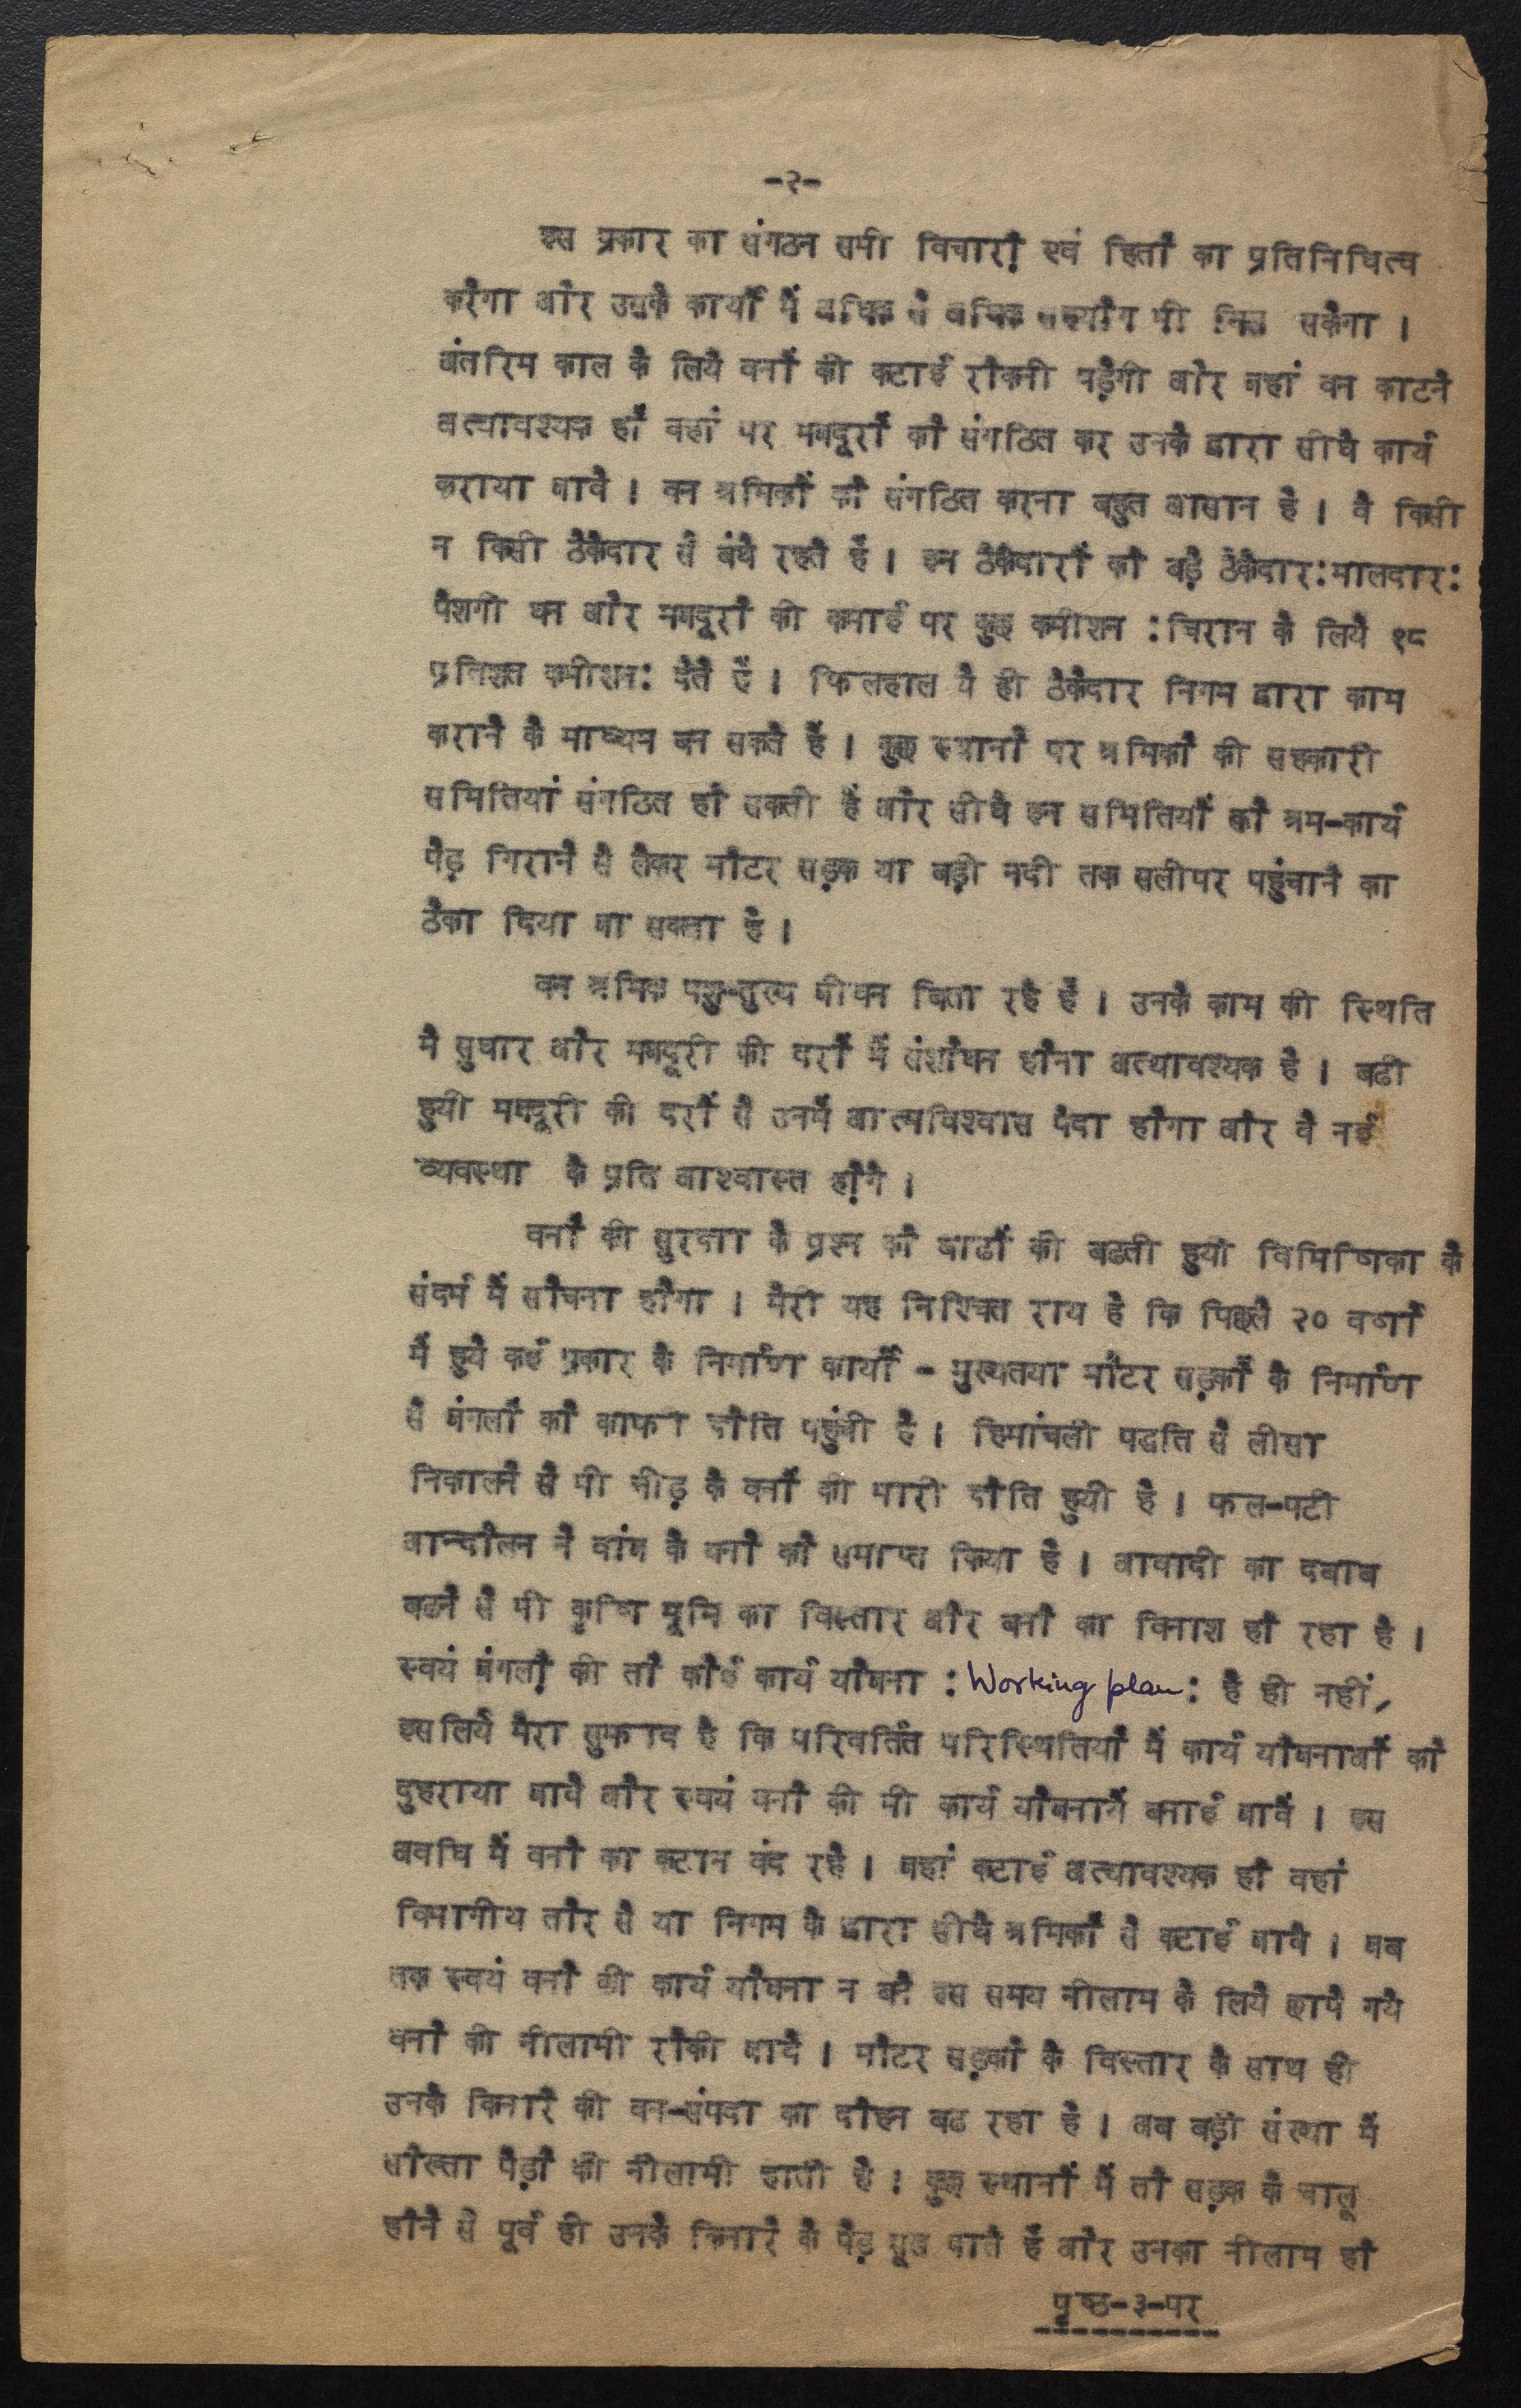 -२-
इस प्रकार का संगठन सभी विचारों एवं हितों का प्रतिनिधित्व
करेगा और उसके कार्यों में अधिक से अधिक सहयोग भी मिल सकेगा ।
अंतरिम काल के लिये वनों की कटाई रोकनी पड़ेगी और जहां वन काटने
अत्यावश्यक हों वहां पर मजदूरों को संगठित कर उनके द्वारा सीधे कार्य
कराया जावे । वन श्रमिकों को संगठित करना बहुत आसान है । वे किसी
न किसी ठेकेदार से बंधे रहते हैं । इन ठेकेदारों को बड़े ठेकेदार:मालदार:
पेशगी धन और मजदूरों की कमाई पर कुछ कमीशन :चिरान के लिये १८
प्रतिशत कमीशन: देते हैं । फिलहाल ये ही ठेकेदार निगम द्वारा काम
कराने के माध्यम बन सकते हैं । कुछ स्थानों पर श्रमिकों की सहकारी
समितियां संगठित हो सकती हैं और सीधे इन समितियों को श्रम-कार्य
पेड़ गिराने से लेकर मोटर सड़क या बड़ी नदी तक सलीपर पहुंचाने का
ठेका दिया जा सकता है ।
वन श्रमिक पशु-तुल्य जीवन बिता रहे हैं । उनके काम की स्थिति
मे सुधार और मजदूरी की दरों में संशोधन होना अत्यावश्यक है । बढी
हुयी मजदूरी की दरों से उनमें आत्मविश्वास पैदा होगा और वे नई
व्यवस्था के प्रति आश्वास्त होंगे ।
वनों की सुरक्षा के प्रश्न को बाढों की बढती हुयी विभिषिका के
संदर्भ में सोचना होगा । मेरी यह निश्चित राय है कि पिछले २० वर्षों
में हुये कई प्रकार के निर्माण कार्यों - मुख्यतया मोटर सड़कों के निर्माण
से जंगलों को काफी क्षति पहुंची है । हिमांचली पद्धति से लीसा
निकालने से भी चीड़ के वनों की भारी क्षति हुयी है । फल-पटी
आन्दोलन ने बांज के वनों को समाप्त किया है । आबादी का दबाब
बढने से भी कृषि भूमि का विस्तार और बनों का विनाश हो रहा है ।
स्वयं जंगलों की तो कोई कार्य योजना : Working plan : है ही नहीं,
इसलिये मेरा सुझाव है कि परिवर्तित परिस्थितियों में कार्य योजनाओं को
दुहराया जावे और स्वयं वनों की भी कार्य योजनायें बनाई जावें । इस
अवधि में वनों का कटान बंद रहे । जहां कटाई अत्यावश्यक हो वहां
विभागीय तौर से या निगम के द्वारा सीधे श्रमिकों से कटाई जावे । जब
तक स्वयं वनों की कार्य योजना न बने इस समय नीलाम के लिये छापे गये
वनों की नीलामी रोकी जावे । मोटर सड़कों के विस्तार के साथ ही
उनके किनारे की वन-संपदा का दोहन बढ रहा है । अब बड़ी संख्या में
सोख्ता पेड़ों की नीलामी होती है । कुछ स्थानों में तो सड़क के चालू
होने से पूर्व ही उनके किनारे के पेड़ सूख जाते हैं और उनका नीलाम हो
पृष्ठ-३-पर